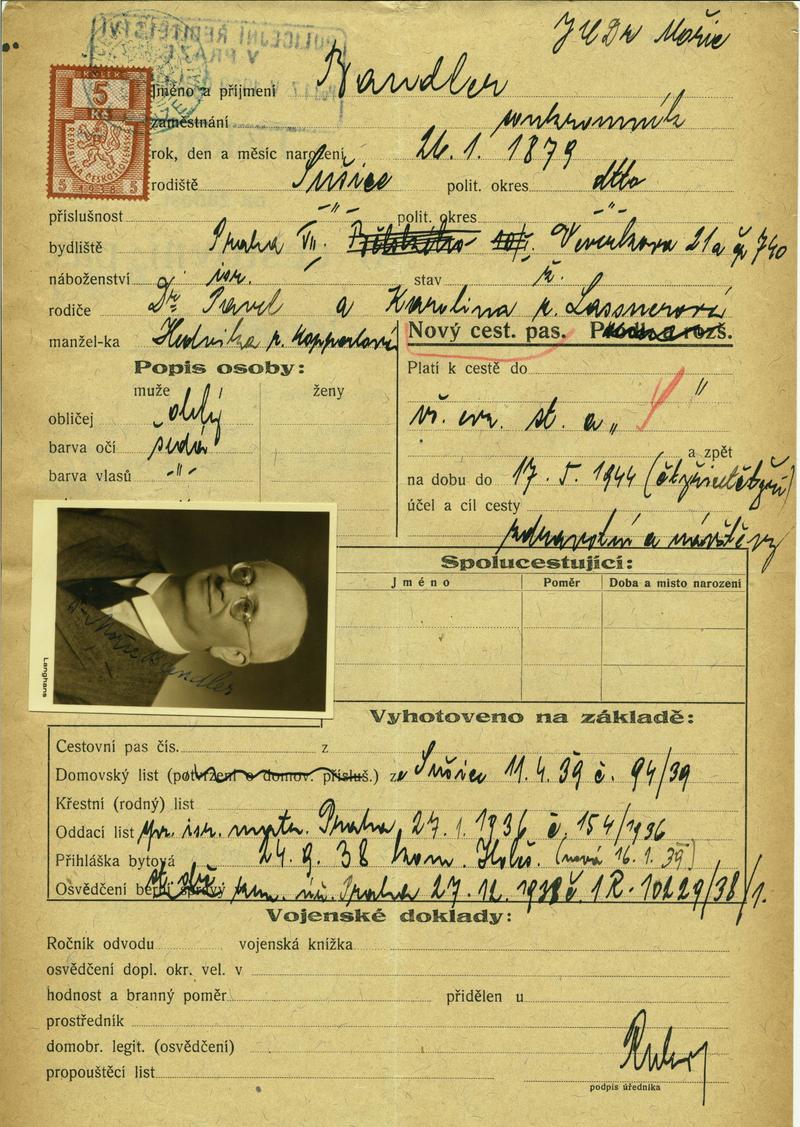 JUDr Mořic
POLICEJNÍ ŘEDITELSTVÍ
V PRAZE
KOLEK
5
Kč
REPUBLIKA ČESKOSLOVENSKÁ
5 1938 5
Jméno a příjmení Bandler
zaměstnání soukromník
rok, den a měsíc narození 26. 1. 1879
rodiště Sušice polit. okres dtto
příslušnost -"- polit. okres -"-
bydliště Praha VII. Veverkova 21a čp 740
náboženství isr. stav ž.
rodiče Dr Pavel a Karolina r. Lassnerová
manžel-ka Hedvika r. Kopperlová
Nový cest. pas. Prodl. a rozš.
Popis osoby:
muže ženy
obličej oblý
barva očí šedá
barva vlasů -"-
Platí k cestě do "
vš. evr. st. a "
a zpět
na dobu do 17. 5. 1944
účel a cíl cesty
zdravotní a návštěvy
Spolucestující:
Jméno Poměr Doba a místo narození
Dr Mořic Bandler
Langhans
Vyhotoveno na základě:
Cestovní pas čís. z
Domovský list (potvrzení o domov. přísluš.) ze Sušice 11.4.39 č. 94/39
Křestní (rodný) list
Oddací list isr. Praha 27.1.1936 č. 154/1936
Přihláška bytová 24.9.38 kom. Holeš. (nová 16.1.39)
Osvědčení berní správy Praha 27.12.1938 č. 1R-10229/38/1.
Vojenské doklady:
Ročník odvodu vojenská knížka
osvědčení dopl. okr. vel. v
hodnost a branný poměr přidělen u
prostředník
domobr. legit. (osvědčení)
propouštěcí list
podpis úředníka